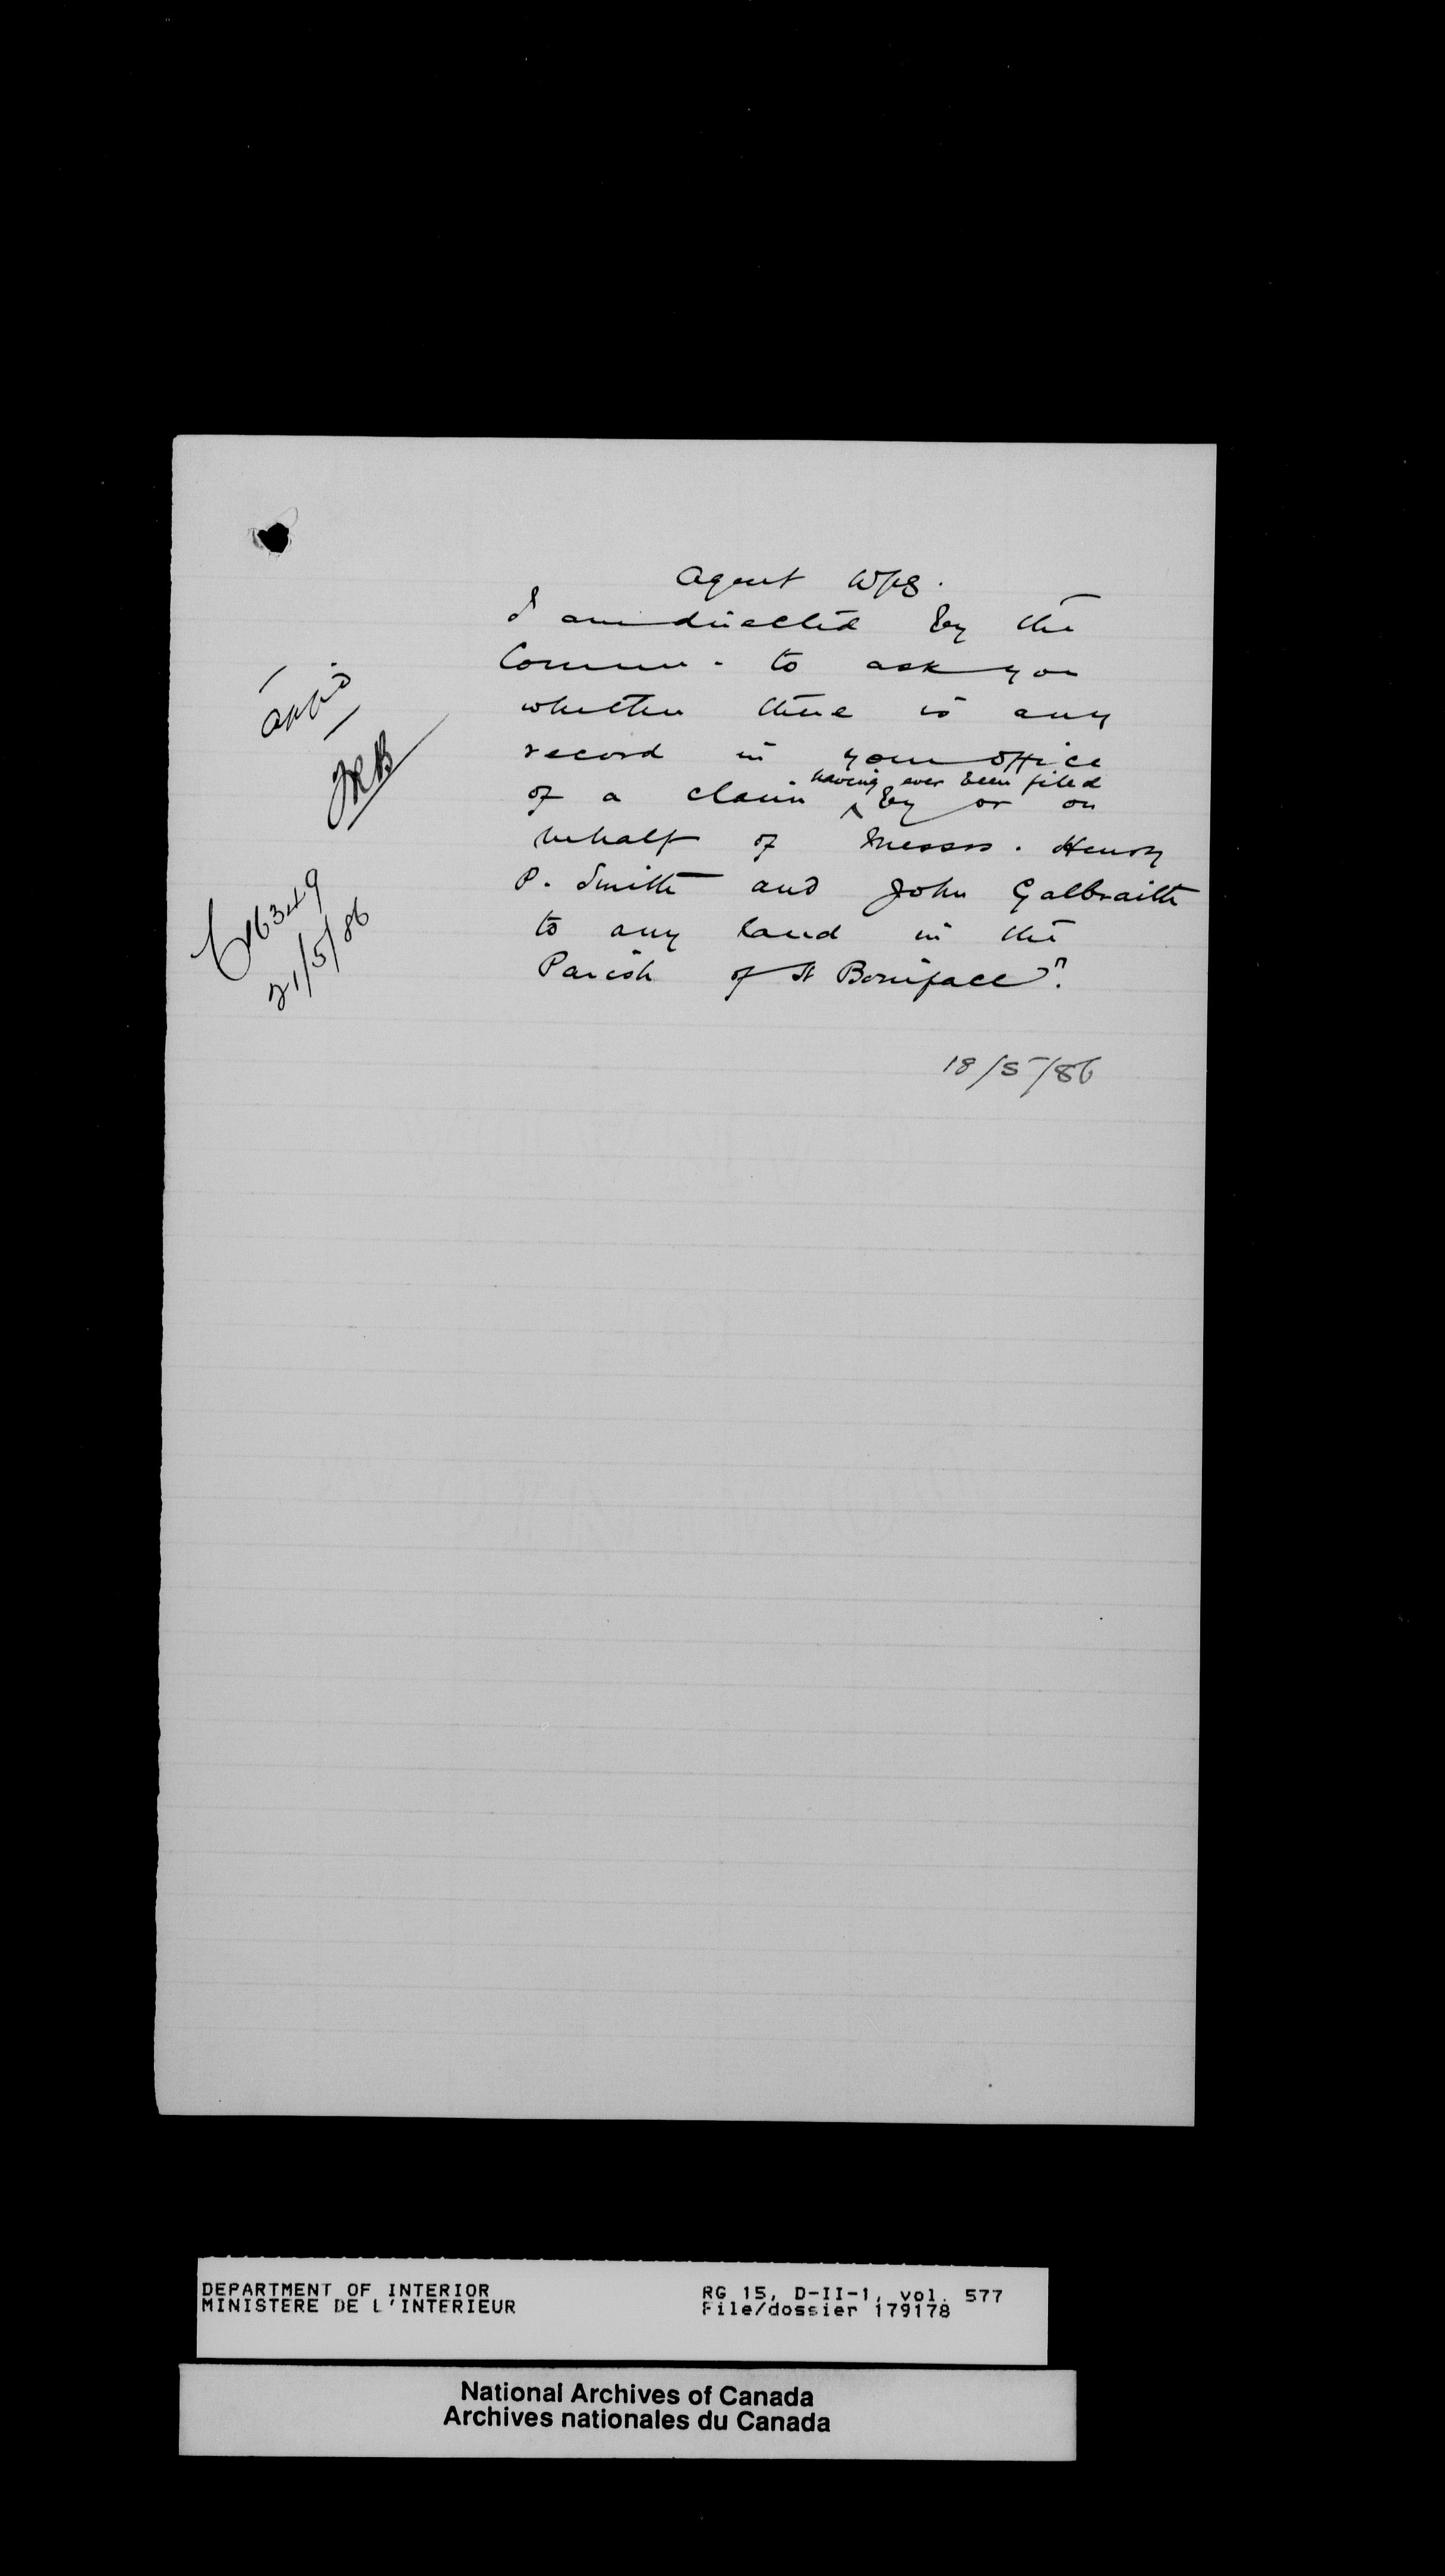 Agent Wpg.
I am directed by the
Commr. to ask you
whether there is any
record in your office
having ever been filed
of a claim ^ by or on
behalf of Messrs. Henry
P. Smith and John Galbraith
to any land in the
Parish of St Boniface?
18/5/86
appd
16349
21/5/86
DEPARTMENT OF INTERIOR
MINISTERE DE L'INTERIEUR
RG 15, D-II-1, vol. 577
File/dossier 179178
National Archives of Canada
Archives nationales du Canada